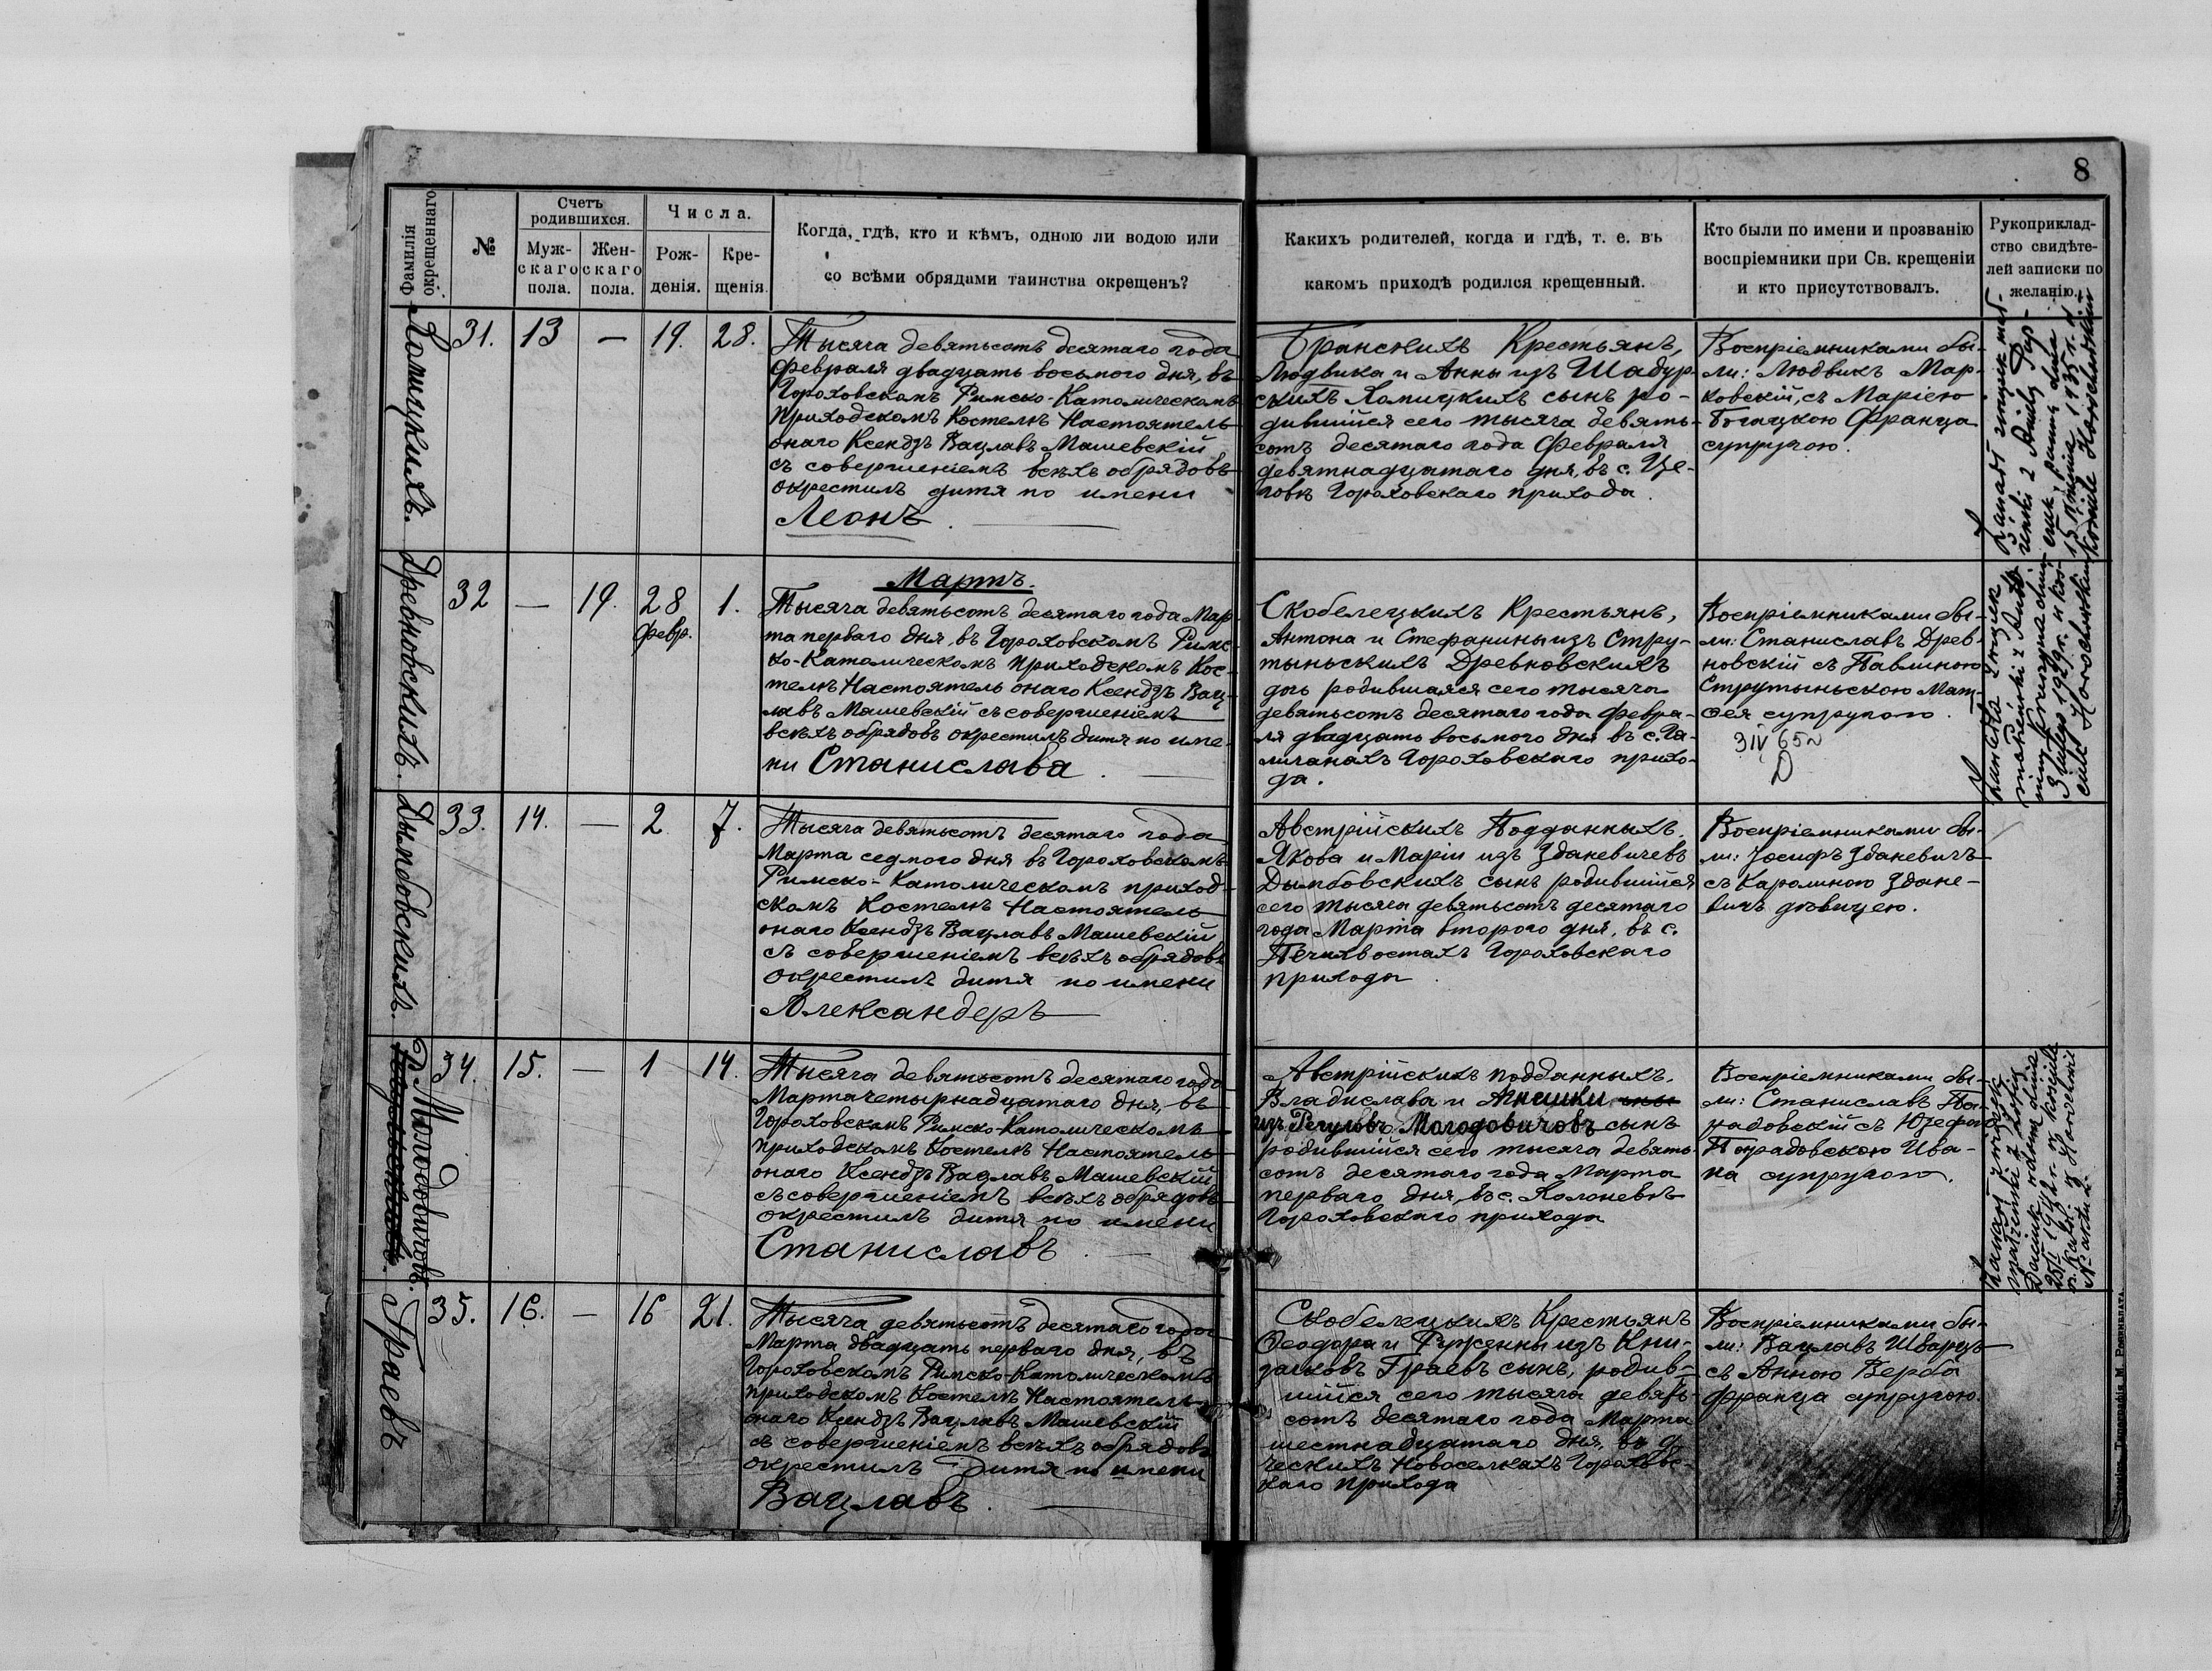 8
Фамилія
окрещеннаго
№
Счетъ
родившихся.
Муж-
скаго
пола.
Жен-
скаго
пола.
Числа.
Рож-
денія.
Кре-
щенія.
Когда, гдѣ, кто и кѣмъ, одною ли водою или
со всѣми обрядами таинства окрещенъ?
Какихъ родителей, когда и гдѣ, т. е. въ
какомъ приходѣ родился крещенный.
Кто были по имени и прозванію
воспріемники при Св. крещеніи
и кто присутствовалъ.
Рукоприклад-
ство свидѣте-
лей записки по
желанію.
Хомицкихъ.
31. 13 — 19. 28.
Тысяча девятьсотъ десятаго года
Февраля двадцать восьмого дня, въ
Гороховскомъ Римско-Католическомъ
Приходскомъ Костелѣ Настоятель
онаго Ксендзъ Вацлавъ Машевскій
съ совершеніемъ всѣхъ обрядовъ
окрестилъ дитя по имени
Леонъ.
Бранскихъ Крестьянъ,
Людвика и Анны изъ Шадур-
скихъ Хомицкихъ сынъ ро-
дившійся сего тысяча девять-
сотъ десятаго года Февраля
девятнадцатаго дня, въ с. Це-
говѣ Гороховскаго прихода.
Воспріемниками бы-
ли: Людвикъ Мар-
ковскій, съ Маріею
Богацкою Франца
супругою.
Древновскихъ.
32 — 19. 28 1.
Февр.
Мартъ.
Тысяча девятьсотъ десятаго года Мар-
та перваго дня, въ Гороховскомъ Римс-
ко-Католическомъ Приходскомъ Кос-
телѣ Настоятель онаго Ксендзъ Вац-
лавъ Машевскій съ совершеніемъ
всѣхъ обрядовъ окрестилъ дитя по име-
ни Станислава.
Скобелецкихъ Крестьянъ,
Антона и Стефанины изъ Стру-
тыньскихъ Древновскихъ
дочь родившаяся сего тысяча
девятьсотъ десятаго года Февра-
ля двадцать восьмого дня въ с. Га-
личанахъ Гороховскаго прихо-
да.
Воспріемниками бы-
ли: Станиславъ Древ-
новскій съ Павлиною
Струтыньскою Мат-
ѳея супругою.
3 IV 65
Дымбовскихъ.
33. 14. — 2. 7.
Тысяча девятьсотъ десятаго года
Марта седмого дня въ Гороховскомъ
Римско-Католическомъ приход-
скомъ Костелѣ Настоятель
онаго Ксендзъ Вацлавъ Машевскій
съ совершеніемъ всѣхъ обрядовъ
окрестилъ дитя по имени
Александеръ
Австрійскихъ Подданныхъ,
Якова и Маріи изъ Зданевичевъ
Дымбовскихъ сынъ родившійся
сего тысяча девятьсотъ десятаго
года Марта второго дня, въ с.
Печихвостахъ Гороховскаго
прихода.
Воспріемниками бы-
ли: Іосифъ Зданевичъ
съ Каролиною Здане-
вичъ дѣвицею.
Молодовичовъ.
34. 15. — 1 14.
Тысяча девятьсотъ десятаго года
Марта четырнадцатаго дня, въ
Гороховскомъ Римско-Католическомъ
приходскомъ Костелѣ Настоятель
онаго Ксендзъ Вацлавъ Машевскій
съ совершеніемъ всѣхъ обрядовъ
окрестилъ дитя по имени
Станиславъ.
Австрійскихъ подданныхъ,
Владислава и Агнешки
изъ Регуловъ Молодовичовъ сынъ
родившійся сего тысяча девять-
сотъ десятаго года Марта
перваго дня, въ с. Холоневѣ
Гороховскаго прихода
Воспріемниками бы-
ли: Станиславъ
съ Юзефою
Ива-
на супругою.
Граевъ
35. 16. — 16 21.
Тысяча девятьсотъ десятаго года
Марта двадцать перваго дня, въ
Гороховскомъ Римско-Католическомъ
приходскомъ Костелѣ Настоятель
онаго Ксендзъ Вацлавъ Машевскій
съ совершеніемъ всѣхъ обрядовъ
окрестилъ дитя по имени
Вацлавъ.
Скобелецкихъ Крестьянъ
Ѳеодора и Руженны изъ Кни-
Граевъ сынъ, родив-
шійся сего тысяча девять-
сотъ десятаго года Марта
шестнадцатаго дня, въ
Ческихъ Новоселкахъ Горохов-
скаго прихода
Воспріемниками бы-
ли: Вацлавъ Шварцъ
съ Анною Верба
Франца супругою.